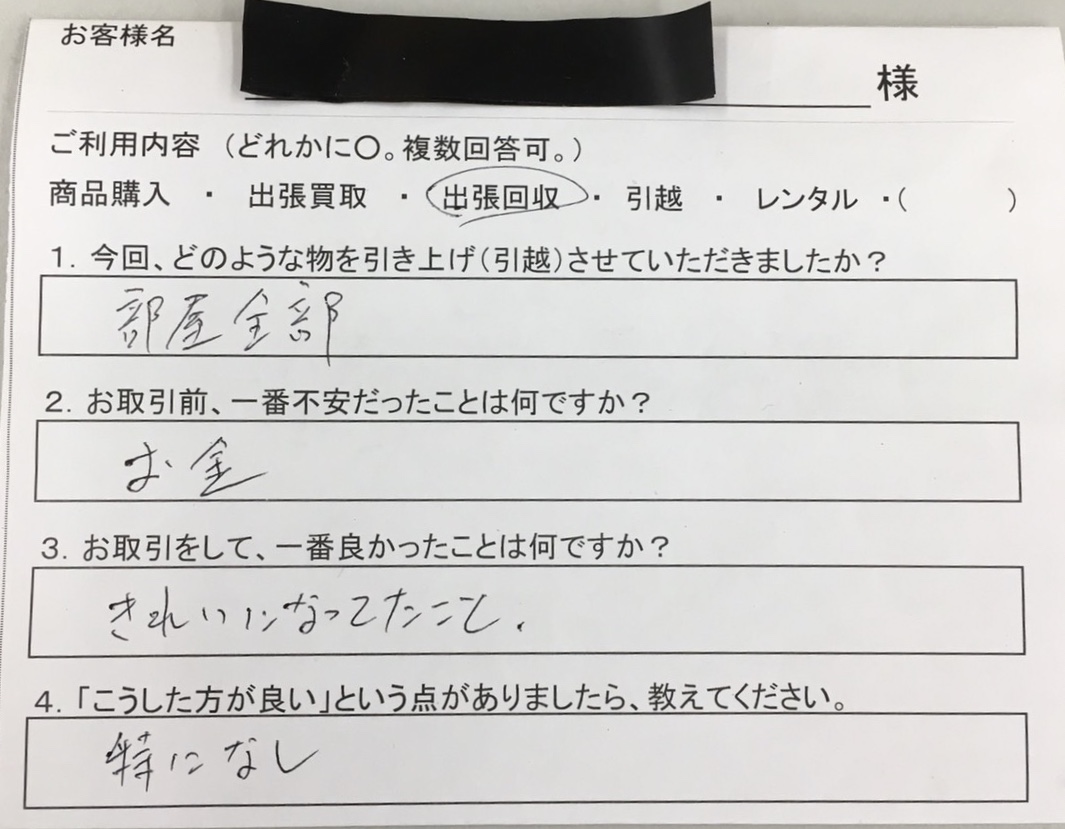 お客様名
様
ご利用内容 （どれかに〇。複数回答可。）
商品購入 ・ 出張買取 ・ 出張回収 ・ 引越 ・ レンタル ・（ ）
1. 今回、どのような物を引き上げ（引越）させていただきましたか？
部屋全部
2. お取引前、一番不安だったことは何ですか？
お金
3. お取引をして、一番良かったことは何ですか？
きれいになってたこと.
4. 「こうした方が良い」という点がありましたら、教えてください。
特になし